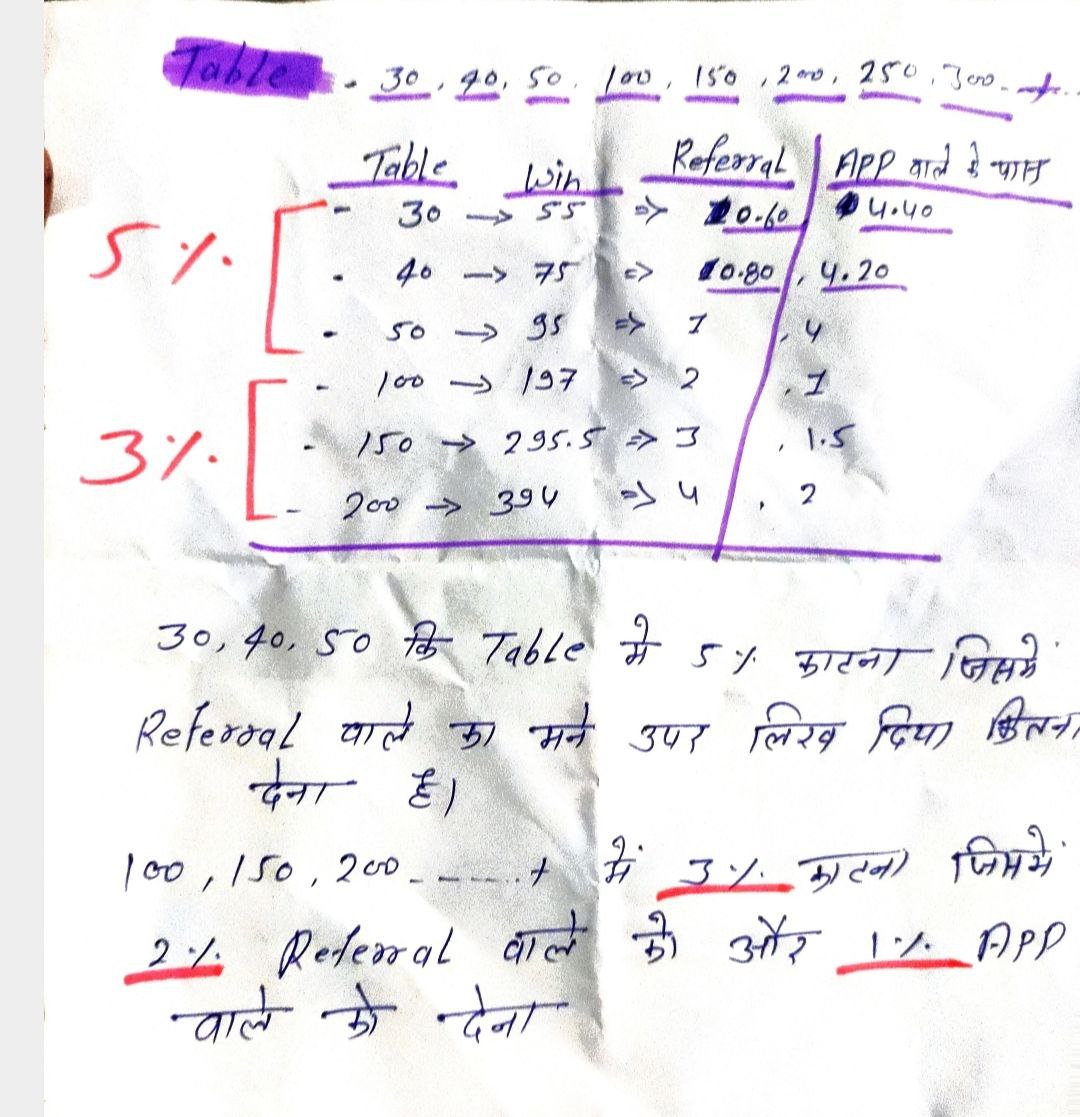 Table - 30, 40, 50, 100, 150, 200, 250, 300 - +..
Table Win Referral APP वाले के पास
5 %.
- 30 → 55 => 0.60 4.40
- 40 → 75 => 0.80, 4.20
- 50 → 95 => 1, 4
3 %.
- 100 → 197 => 2, 1
- 150 → 295.5 => 3, 1.5
- 200 → 394 => 4, 2
30, 40, 50 कि Table मे 5 %. काटना जिसमें
Referral वाले का मने उपर लिख दिया कितना
देना है।
100, 150, 200 ------.+ में 3 %. काटना जिसमें
2 %. Referral वाले को और 1 %. APP
वाले को देना